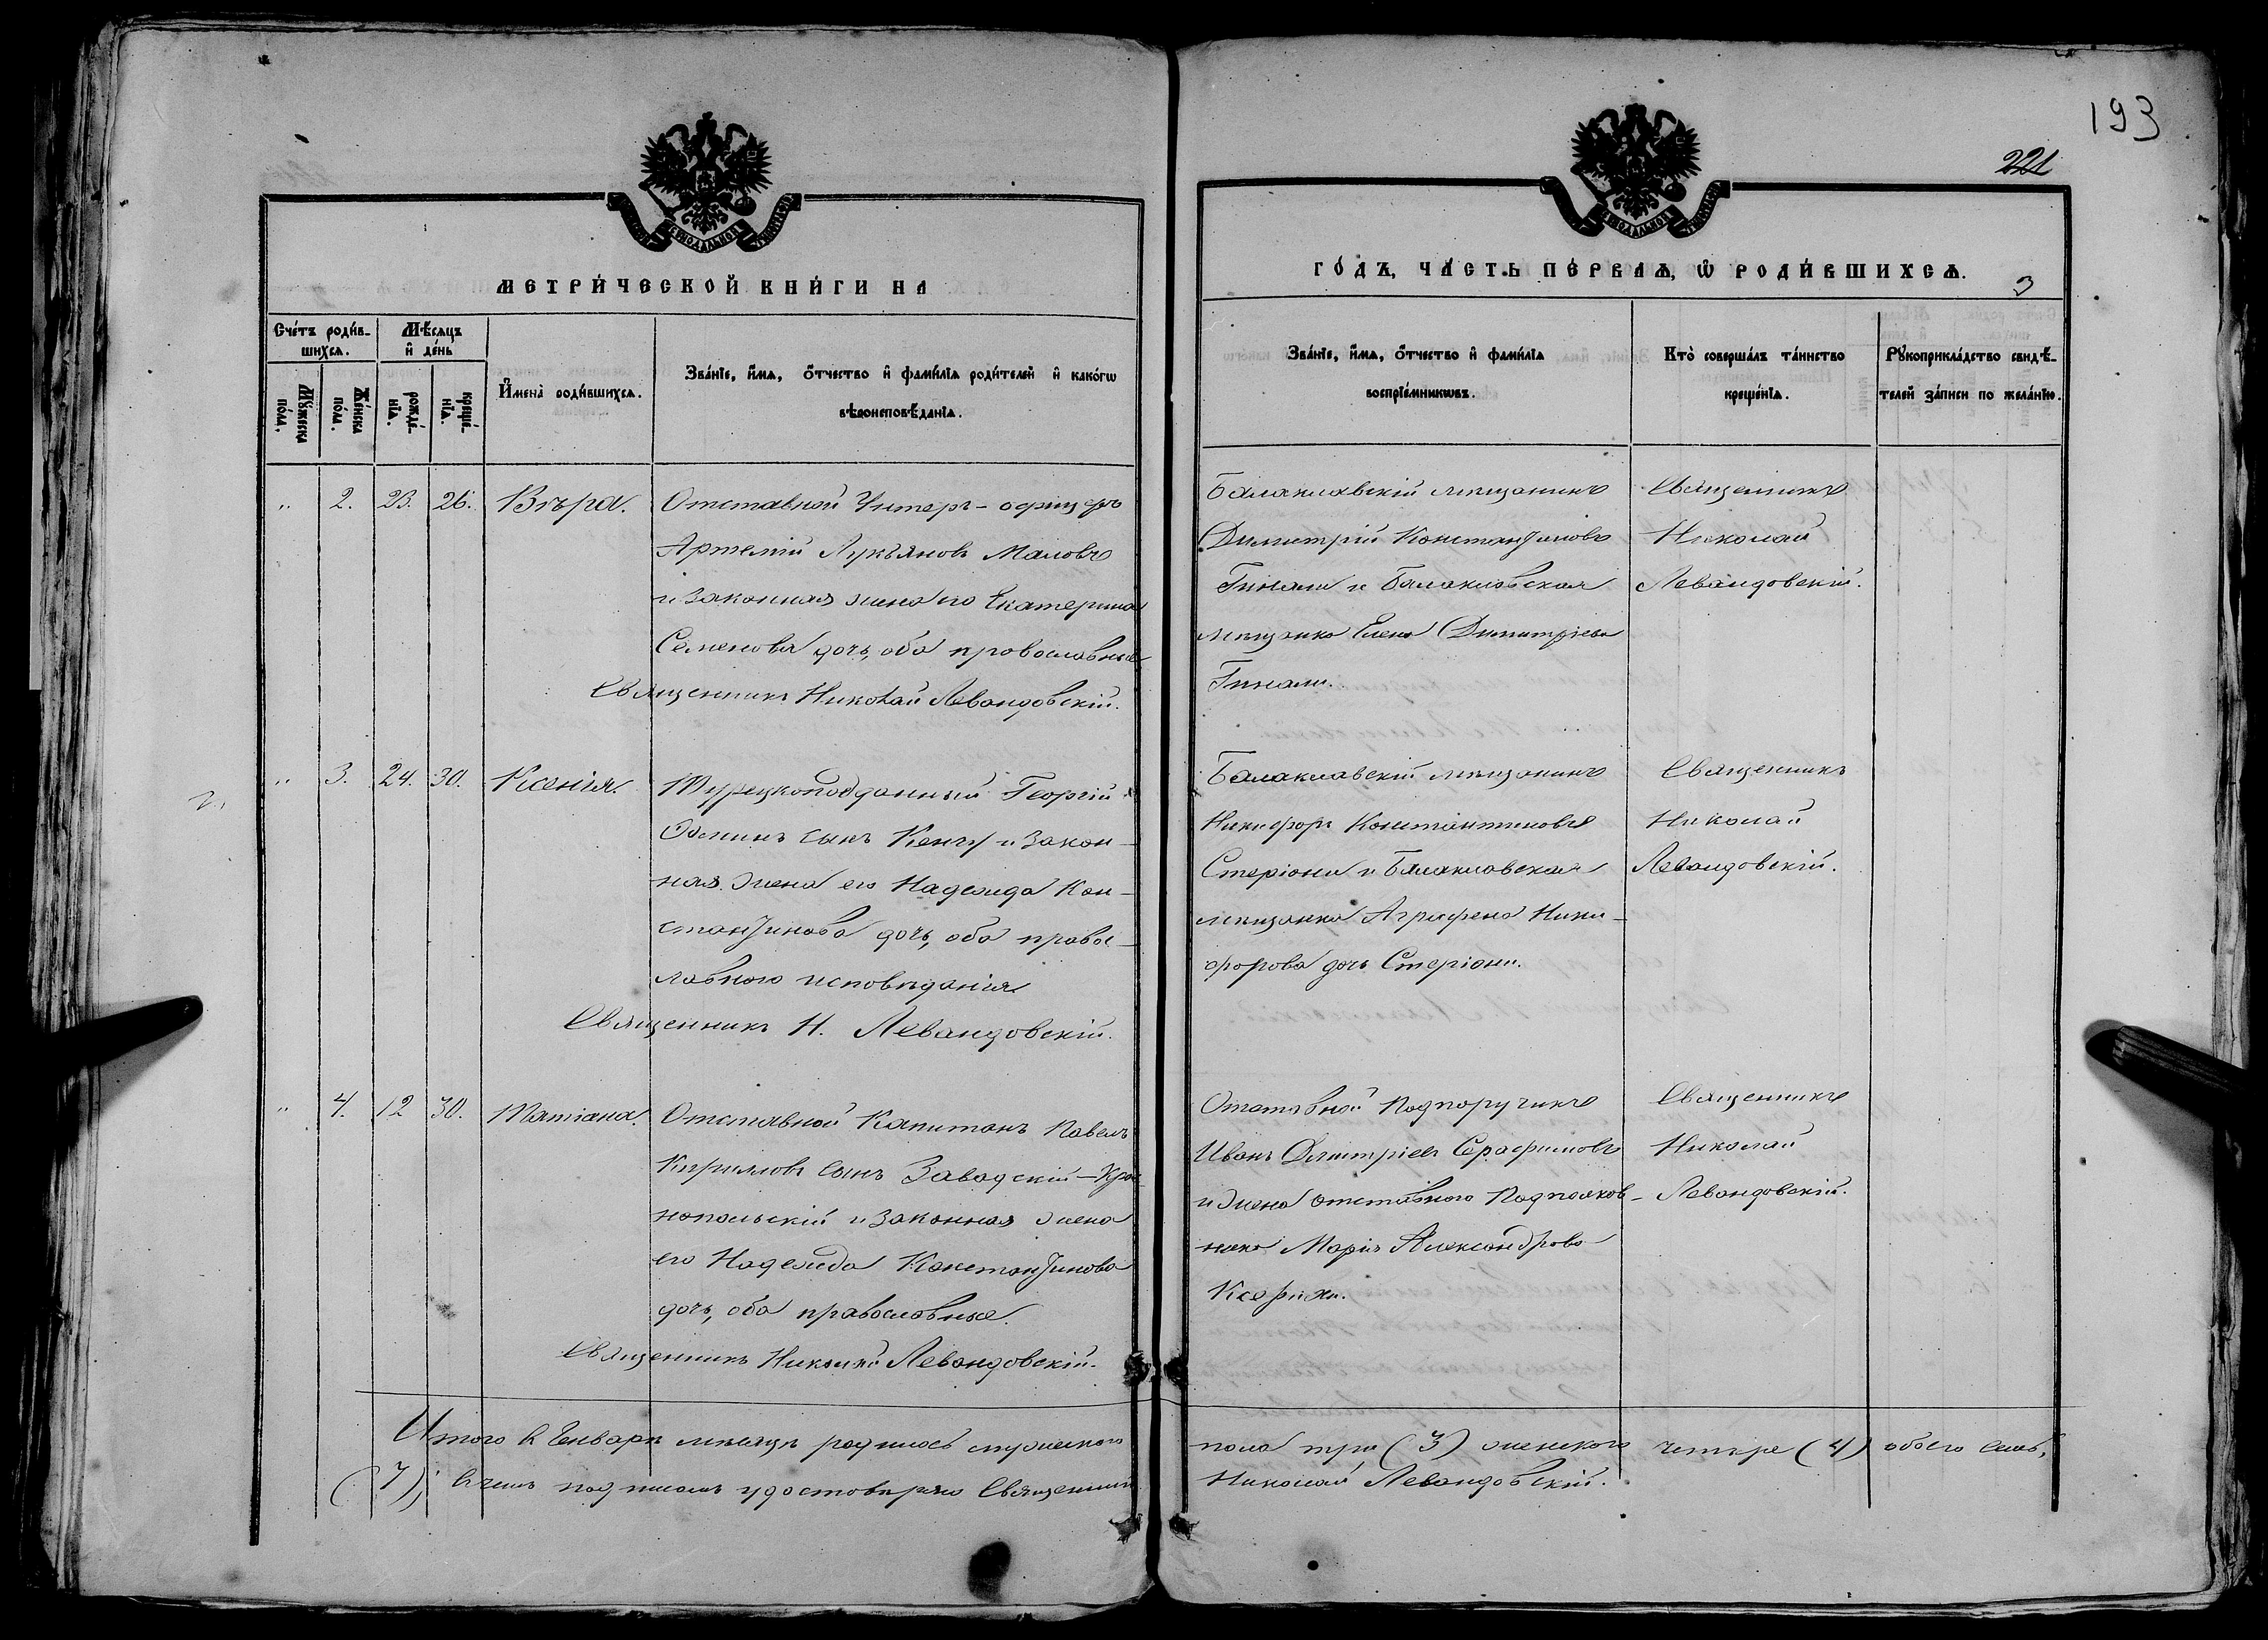 193
221
МЕТРИ́ЧЕСКОЙ КНИ́ГИ НА
ГО́ДЪ, ЧА́СТЬ ПЕ́РВАѦ, Ѡ҆ РОДИ́ВШИХСѦ.
3
Сче́тъ роди́в-
шихсѧ.
Мꙋ́жеска
по́ла.
Же́нска
по́ла.
Мѣ́сѧцъ
и҆ де́нь
рожде́-
нїѧ.
креще́-
нїѧ.
И҆мена̀ роди́вшихсѧ.
Зва́нїе, и҆́мѧ, ѻ҆́тчество и҆ фами́лїѧ роди́телей и҆ како́гѡ
вѣроисповѣ́данїѧ.
Зва́нїе, и҆́мѧ, ѻ҆́тчество и҆ фами́лїѧ
воспрїе́мникѡвъ.
Кто̀ соверша́лъ та́инство
креще́нїѧ.
Рꙋкоприкла́дство свидѣ́-
телей за́писи по жела́нїю.
" 2. 23. 26. Вѣра.
Отставной Унтеръ-офицеръ
Артемій Лукьяновъ Маловъ
и законная жена его Екатерина
Семенова дочь, оба православные
Священникъ Николай Левандовскій.
Балаклавскій мѣщанинъ
Димитрій Константиновъ
Гинали и Балаклавская
мѣщанка Елена Димитріева
Гинали.
Священникъ
Николай
Левандовскій.
" 3. 24. 30. Ксенія.
Турецкоподданный Георгій
сынъ Кенчу и закон-
ная жена его Надежда Кон-
стантинова дочь, оба право-
славного исповѣданія
Священникъ Н. Левандовскій.
Балаклавскій мѣщанинъ
Никифоръ Константиновъ
Стеріони и Балаклавская
мѣщанка Агрифена Ники-
форова дочь Стеріони.
Священникъ
Николай
Левандовскій.
" 4. 12 30. Татіана.
Отставной Капитанъ Павелъ
Кириловъ сынъ Завадскій-Крас
нопольскій и законная жена
его Надежда Константинова
дочь, оба православные.
Священникъ Николай Левандовскій.
Отставной Подпоручикъ
Иванъ Дмитріевъ Серафимовъ
и жена отставного Подполков-
ника Марія Александрова
Священникъ
Николай
Левандовскій.
Итого въ Генварѣ мѣсяцѣ родилось мужеского пола три (3) женского четыре (4) обоего семь,
(7); въ чемъ подписомъ удостовѣряю Священникъ Николай Левандовскій.